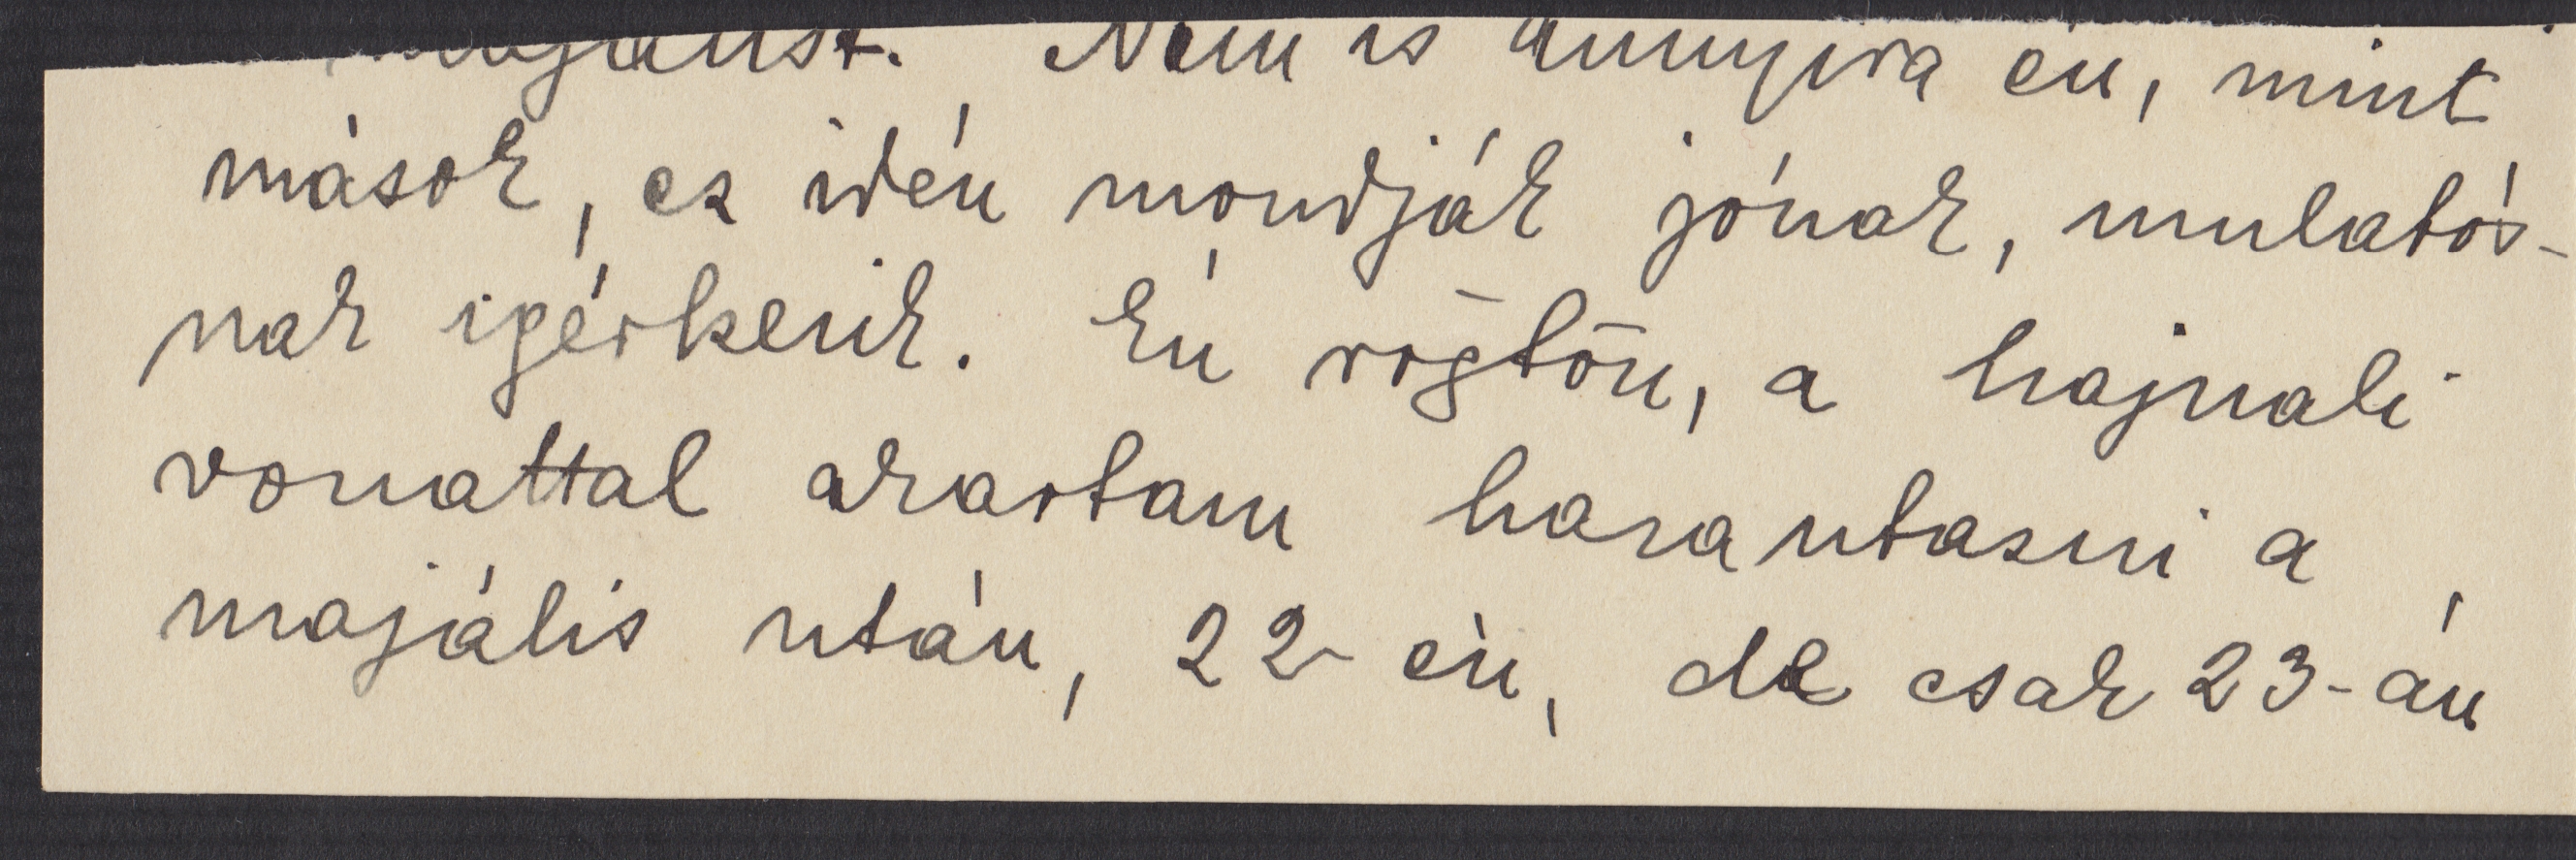 majálist. Nem is annyira én, mint
mások, ez idén mondják jónak, mulatós-
nak igérkezik. Én rögtön, a hajnali
vonattal akartam hazautazni a
majális után, 22-én, de csak 23-án